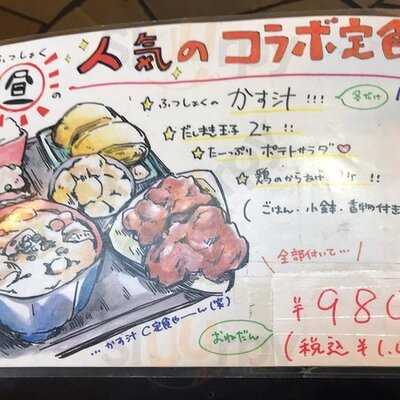 ふつしょくの
昼の 人気の コラボ定食
☆ ふつしょくの かす汁 !!! 冬だけ
☆ だしまき玉子 2ヶ !!
☆ たーっぷり ポテトサラダ♡
☆ 鶏のからあげ ヶ !!
( ごはん・小鉢・香物付き
全部付いて…
¥980
おねだん
( 税込 ¥1.0
… かす汁 C 定食や〜ん (笑)